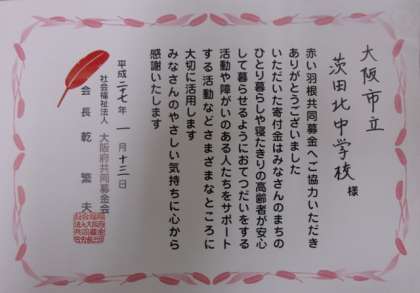 大阪市立
茨田北中学校 様
赤い羽根共同募金へご協力いただき
ありがとうございました
いただいた寄付金はみなさんのまちの
ひとり暮らしや寝たきりの高齢者が安心
して暮らせるようにおてつだいをする
活動や障がいのある人たちをサポート
する活動などさまざまなところに
大切に活用します
みなさんのやさしい気持ちに心から
感謝いたします
平成二七年 一月十三日
社会福祉法人 大阪府共同募金会
会長 乾 繁夫